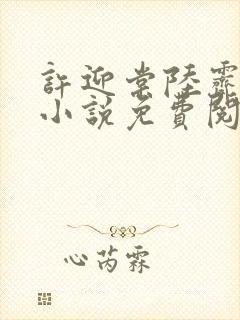 許迎常陸霽
小說免費閱
心芮霖